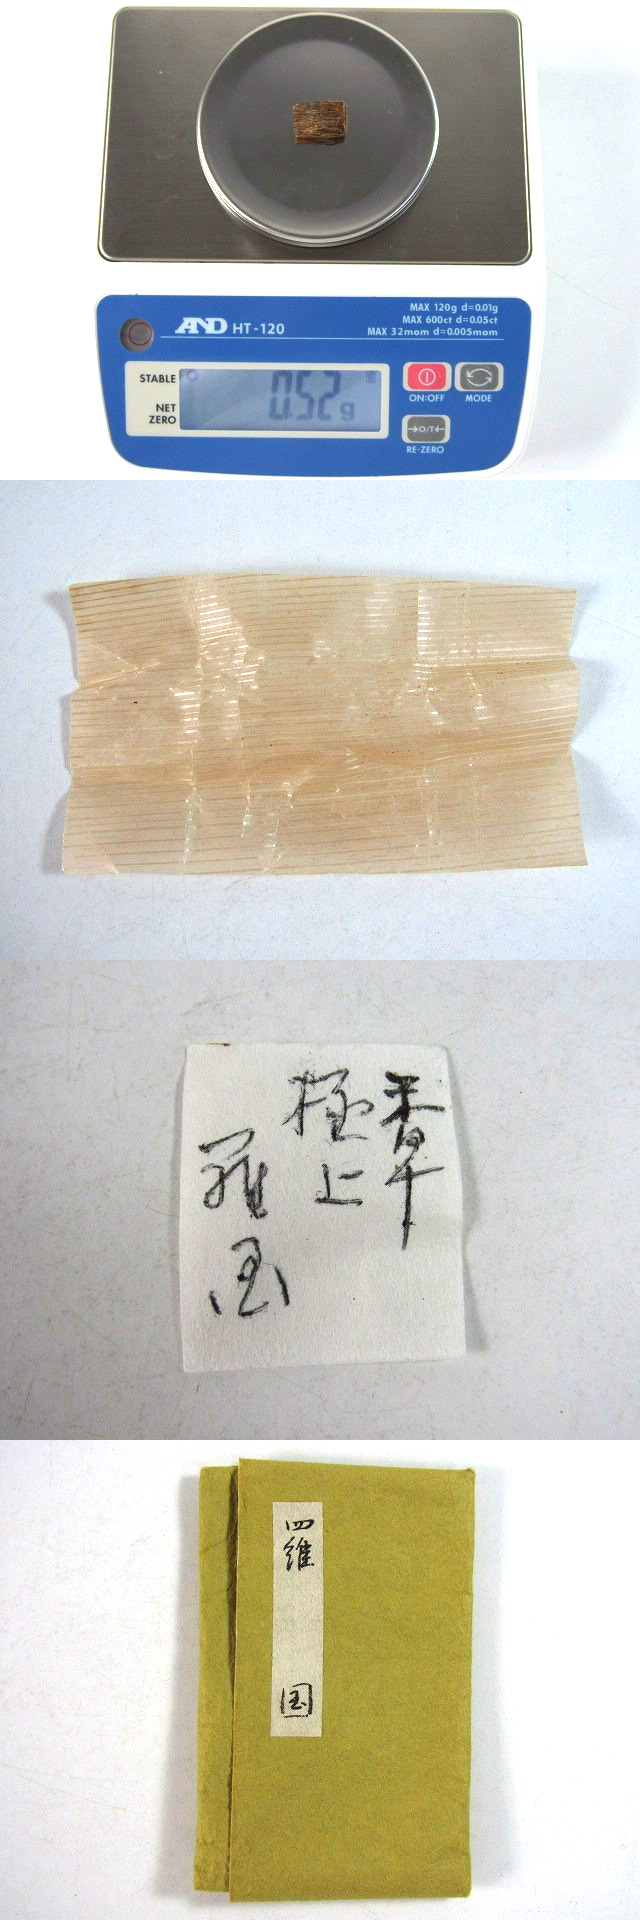 MAX 120g d=0.01g
MAX 600ct d=0.05ct
MAX 32mom d=0.005mom
AND HT-120
STABLE
NET
ZERO
0.52 g
ON:OFF
MODE
→O/T←
RE-ZERO
極上
羅国
羅国